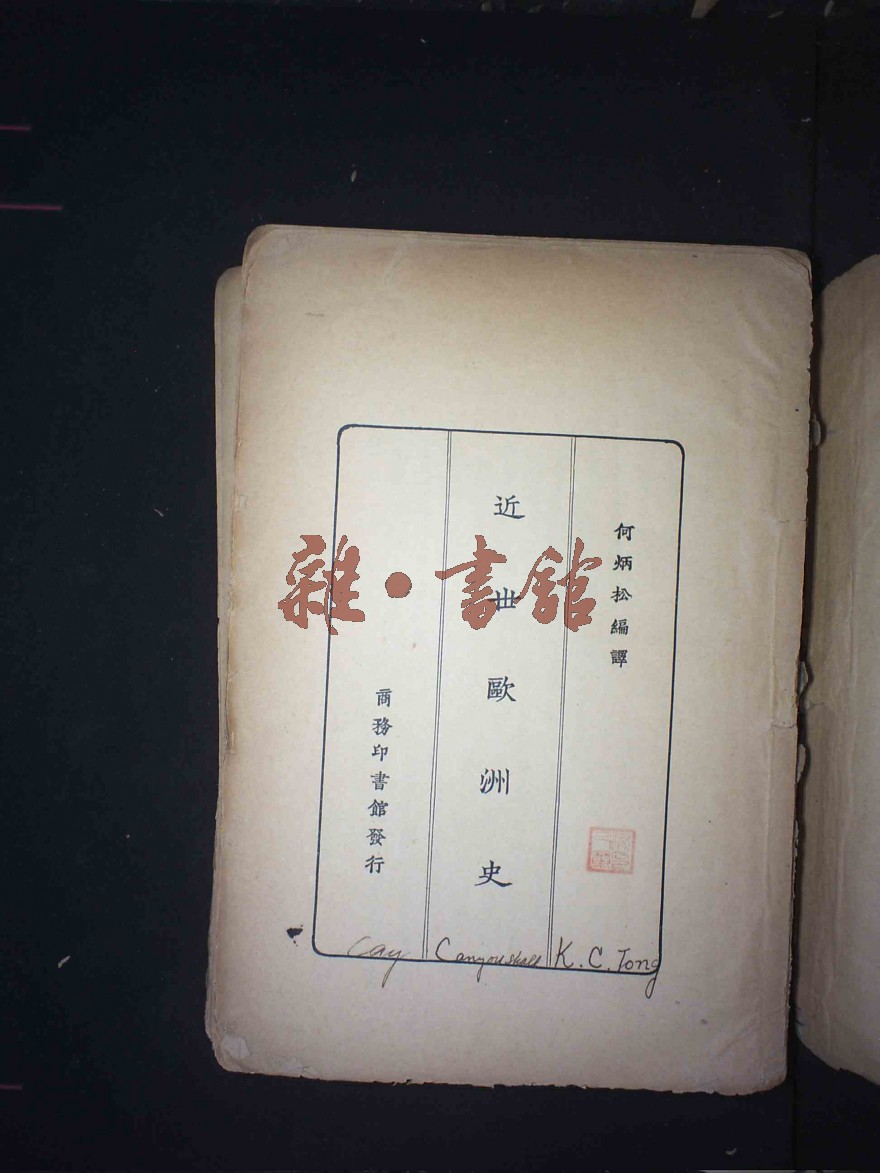 何炳松編譯
近世歐洲史
商務印書館發行
雜·書館
K. C. Tong